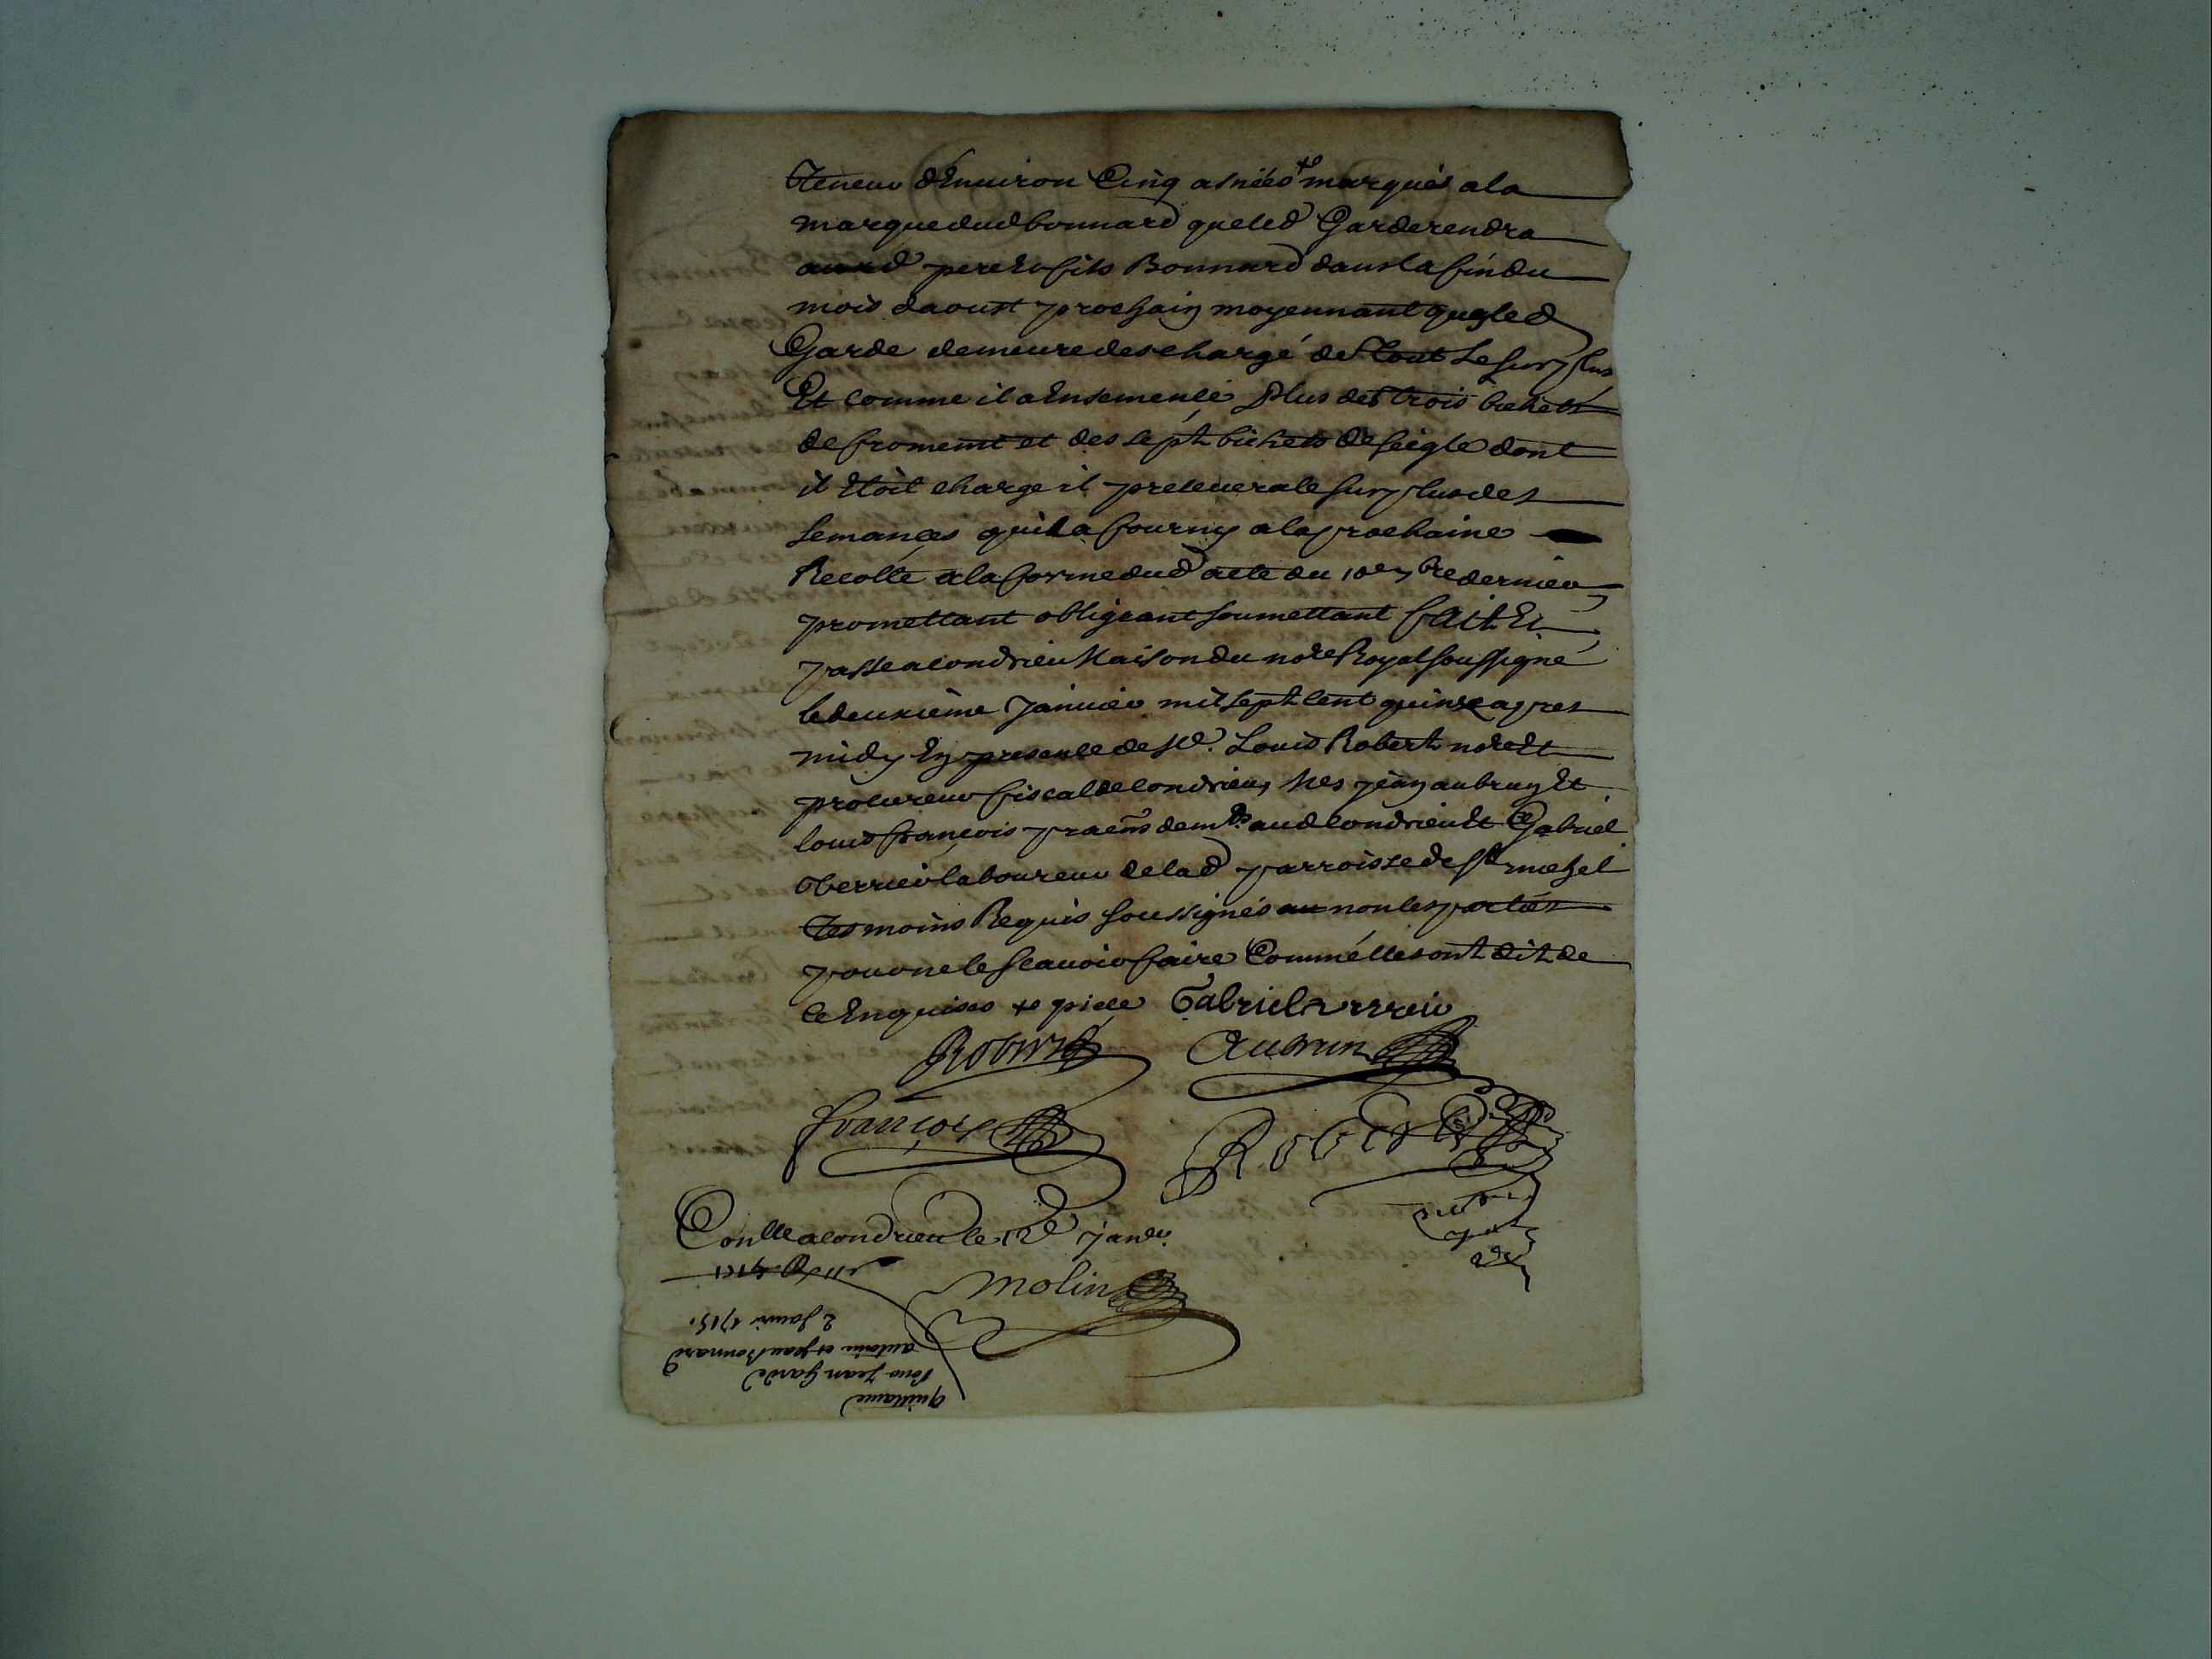 Teneur d'Environ Cinq asnées + marqués a la
marque dud bonnard que led Garde rendra
ausd pere et fils Bonnard dans la fin du
mois daoust prochain moyennant que led
Garde demeure deschargé de tout le surplus
Et comme il a Ensemencé plus des trois bichets
de froment et des sept bichets de seigle dont
il Etoit charge il prelevera le surplus des
semances quil a fourny a la prochaine
Recolte a la forme dud acte du 10e 7bre dernier
promettant obligeant soumettant fait Et
passe a condrieu Maison du nore Royal soussigné
le deuxième Janvier mil sept cent quinze apres
midy En presence de Me. Louis Robert nore Et
procureur fiscal de condrieu, Mes jean aubrun Et
louis françois praens demts aud condrieu Et Gabriel
Verrier laboureur de lad parroisse de St michel
Tesmoins Requis soussignés non les parties
pour ne le scavoir faire Comme elles ont dit de
ce Enquises + piece Gabriel verrier
Robert Aubrun
françois Robert
Conlle a condrieu le 12e janr
Molin
quittance
pour Jean Garde
antoine et jean Bonnard
2 Janvr 1715.